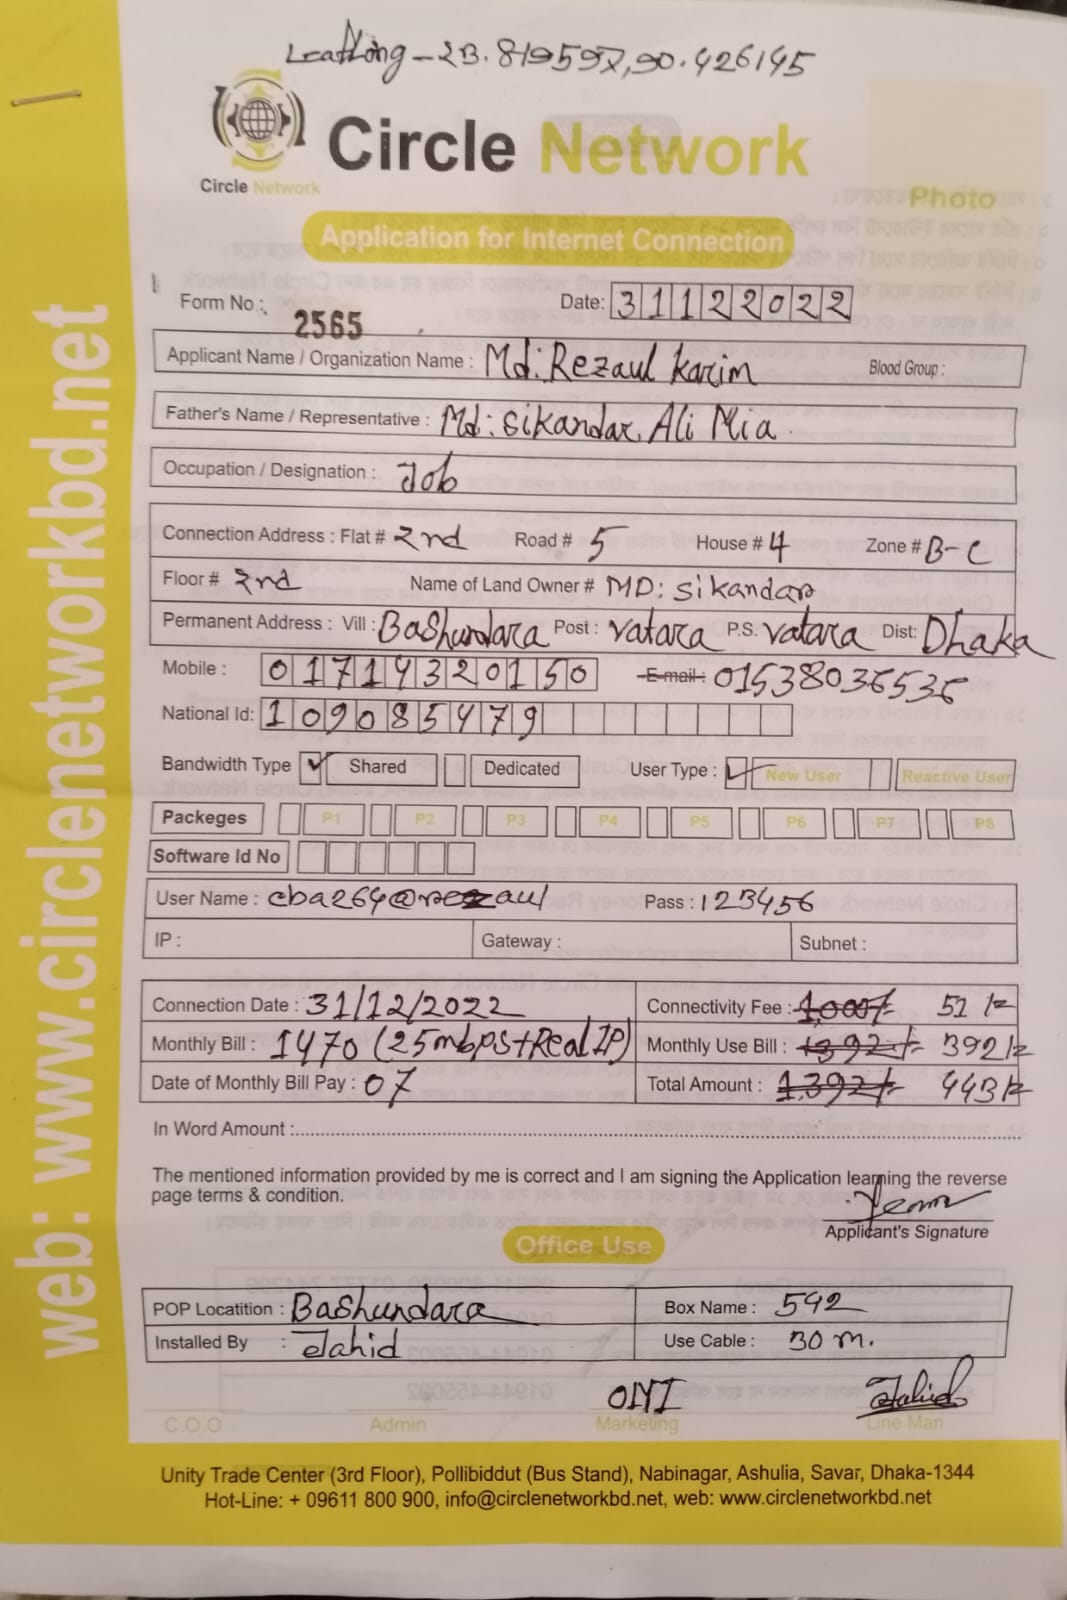 Leatlong - 23.819597, 90.426145
Circle Network
Circle Network
Photo
Application for Internet Connection
Form No.: 2565 Date: 31122022
Applicant Name / Organization Name : Md: Rezaul Karim Blood Group :
Father's Name / Representative : Md: Sikandar Ali Mia
Occupation / Designation : Job
Connection Address : Flat # 2nd Road # 5 House # 4 Zone # B-C
Floor # 2nd Name of Land Owner # MD: Sikandar
Permanent Address : Vill : Bashundara Post : vatara P.S. vatara Dist: Dhaka
Mobile : 01714320150 E-mail : 01538036536
National Id: 1090854779
Bandwidth Type ✓ Shared Dedicated User Type : ✓ New User Reactive User
Packeges P1 P2 P3 P4 P5 P6 P7 P8
Software Id No
User Name : cba264@rezaul Pass : 123456
IP : Gateway : Subnet :
Connection Date : 31/12/2022 Connectivity Fee : 1,000/- 51/-
Monthly Bill : 1470 (25mbps+Real IP) Monthly Use Bill : 1392/- 392/-
Date of Monthly Bill Pay : 07 Total Amount : 1,392/- 443/-
In Word Amount :
The mentioned information provided by me is correct and I am signing the Application learning the reverse
page terms & condition.
Applicant's Signature
Office Use
POP Locatition : Bashundara Box Name : 592
Installed By : Jahid Use Cable : 30 m.
Jahid
C.O.O Admin Marketing Line Man
Unity Trade Center (3rd Floor), Pollibiddut (Bus Stand), Nabinagar, Ashulia, Savar, Dhaka-1344
Hot-Line: + 09611 800 900, info@circlenetworkbd.net, web: www.circlenetworkbd.net
web: www.circlenetworkbd.net